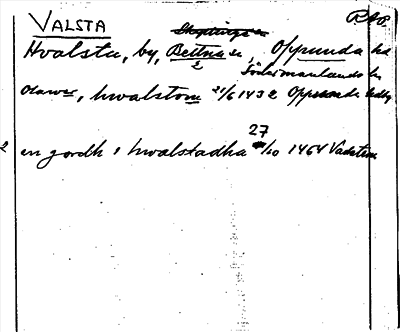 VALSTA
Hvalsta, by, Bettna sn, Oppunda hd
2
Södermanlands län
Olawer, hwalstom 21/6 1432 Oppunda
27
2 en gordh i hwalstadha /10 1464 Vadstena